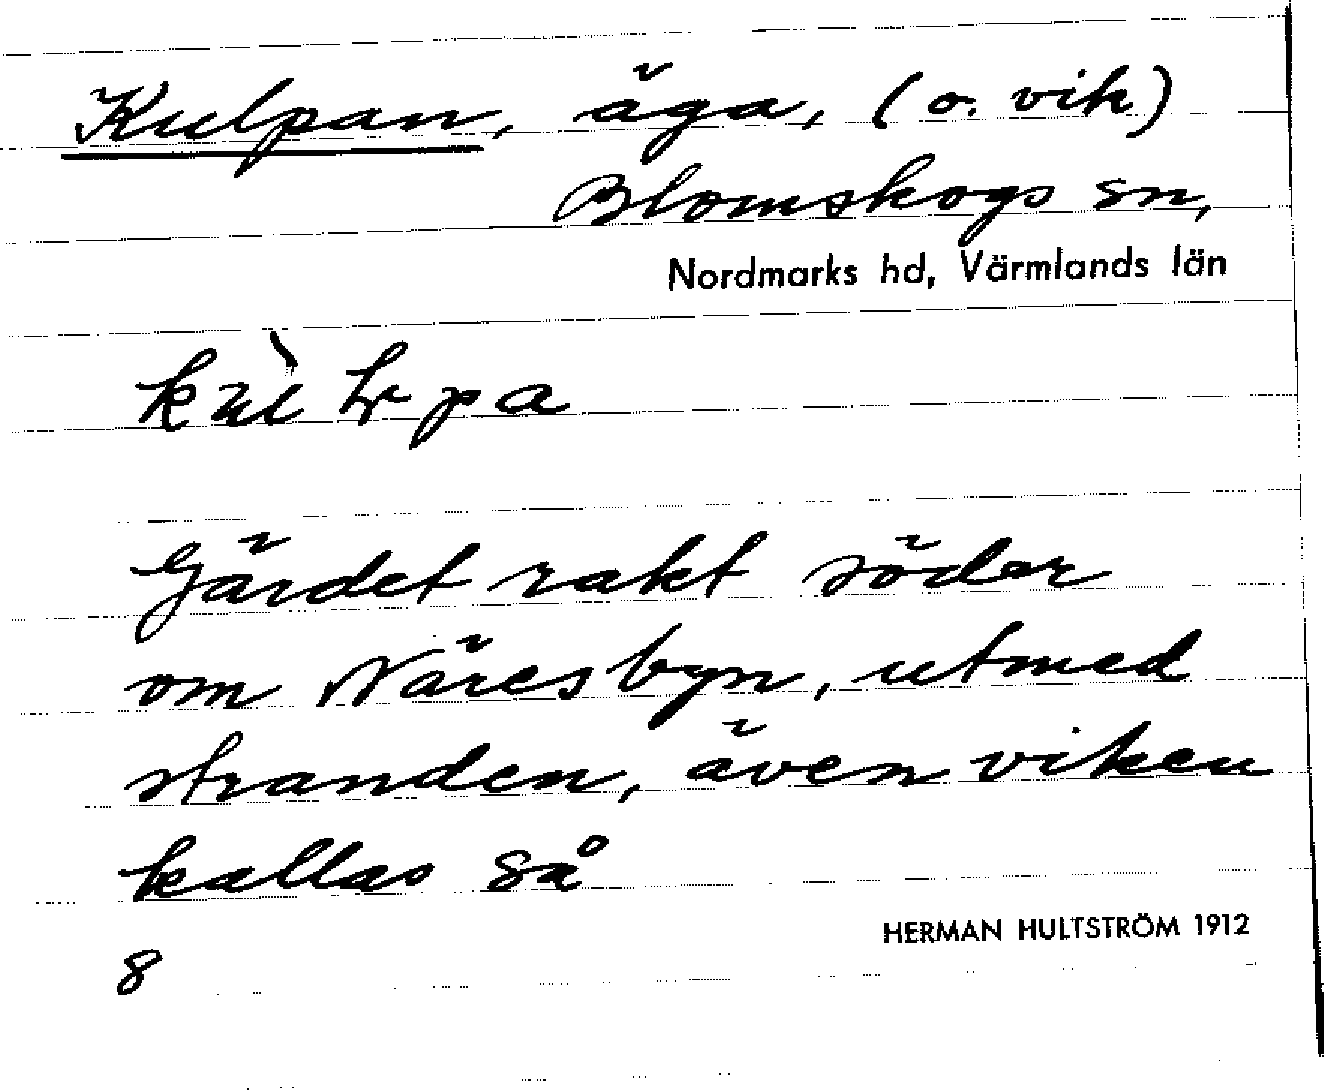 Kulpan, äga, (o. vik)
Blomskogs sn,
Nordmarks hd, Värmlands län
Gärdet rakt söder
om Näresbyn, utmed
stranden, även viken
kallas så
HERMAN HULTSTRÖM 1912
8